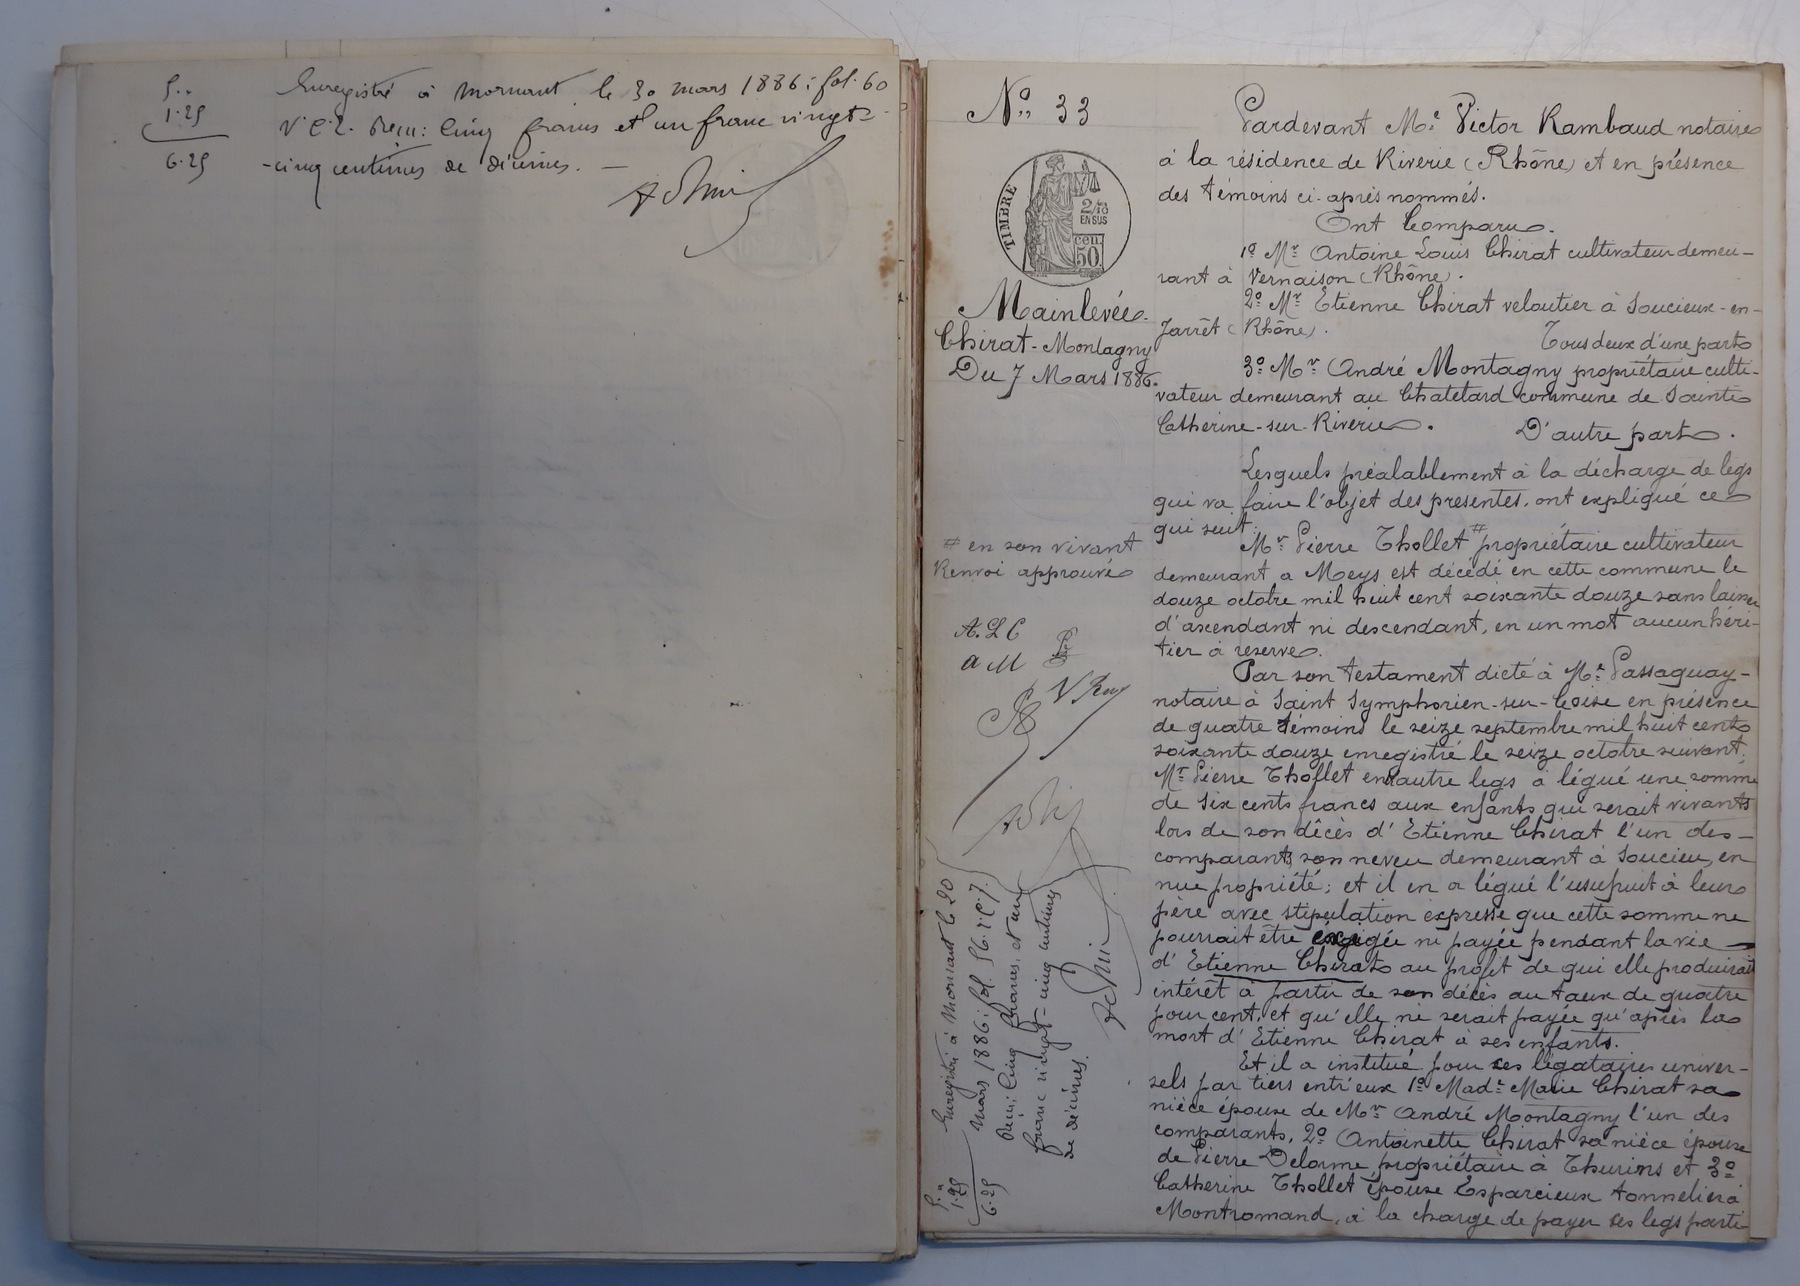 5..
1.25
6.25
Enregistré à Mornant le 30 mars 1886: fol. 60
v° c. 2. Reçu: Cinq francs et un franc vingt-
-cinq centimes de décimes. —
N°. 33
TIMBRE
2/10
EN SUS
cen.
50.
Mainlevée
Chirat-Montagny
Du 7 Mars 1886.
# en son vivant
Renvoi approuvé
A. L C
a M
V Ray
Enregistré à Mornant le 20
mars 1886: fol. 56. v° c. 7.
Reçu: Cinq francs, et un
franc vingt-cinq centimes
de décimes.
5.."
1.25
6.25
Pardevant Me. Victor Rambaud notaire
à la résidence de Riverie (Rhône) et en présence
des témoins ci-après nommés.
Ont Comparu.
1° Mr Antoine Louis Chirat cultivateur demeu-
rant à Vernaison (Rhône).
2° Mr Etienne Chirat veloutier à Soucieux-en-
Jarrêt (Rhône).
Tous deux d'une part
3° Mr André Montagny propriétaire culti-
vateur demeurant au Chatelard commune de Sainte
Catherine-sur-Riverie.
D'autre part.
Lesquels préalablement à la décharge de legs
qui va faire l'objet des présentes, ont expliqué ce
qui suit:
Mr Pierre Thollet # propriétaire cultivateur
demeurant a Meys est décédé en cette commune le
douze octobre mil huit cent soixante douze sans laisser
d'ascendant ni descendant, en un mot aucun héri-
tier à reserve.
Par son testament dicté à Me. Passaguay-
notaire à Saint Symphorien-sur-Coise en présence
de quatre témoins le seize septembre mil huit cent
soixante douze enregistré le seize octobre suivant;
Mr Pierre Thollet entr autre legs à légué une somme
de six cents francs aux enfants qui serait vivants
lors de son décès d'Etienne Chirat l'un des-
comparants son neveu demeurant à Soucieu, en
nue propriété; et il en a légué l'usufruit à leur
père avec stipulation expresse que cette somme ne
pourrait être exigée ni payée pendant la vie —
d'Etienne Chirat au profit de qui elle produirait
intérêt à partir de son décès au taux de quatre
pour cent, et qu'elle ne serait payée qu'après la
mort d'Etienne Chirat à ses enfants.
Et il a institué pour ses légataires univer-
sels par tiers entr'eux 1° Made Marie Chirat sa
nièce épouse de Mr André Montagny l'un des
comparants, 2° Antoinette Chirat sa nièce épouse
de Pierre Delorme propriétaire à Thurins et 3°
Catherine Thollet épouse Esparcieux tonnelier à
Montromand, à la charge de payer ses legs parti-